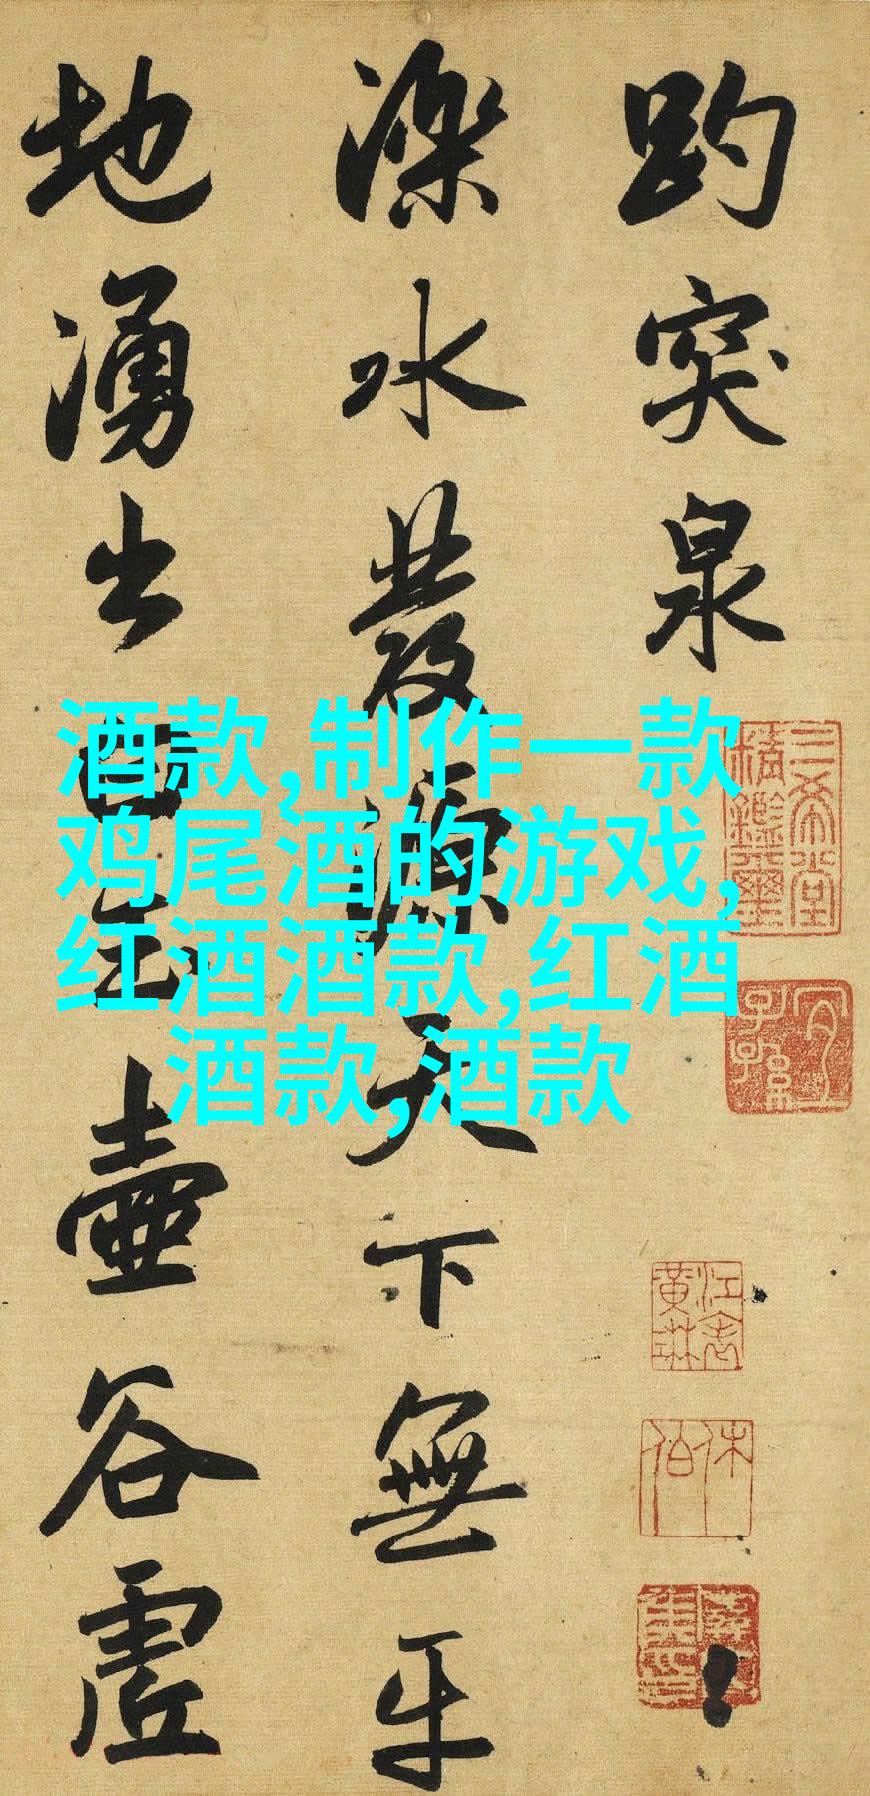 趵突泉
濼水發源天下無
平地湧出白玉壺谷虛
酒款,制作一款
鸡尾酒的游戏,
红酒酒款,红酒
酒款,酒款